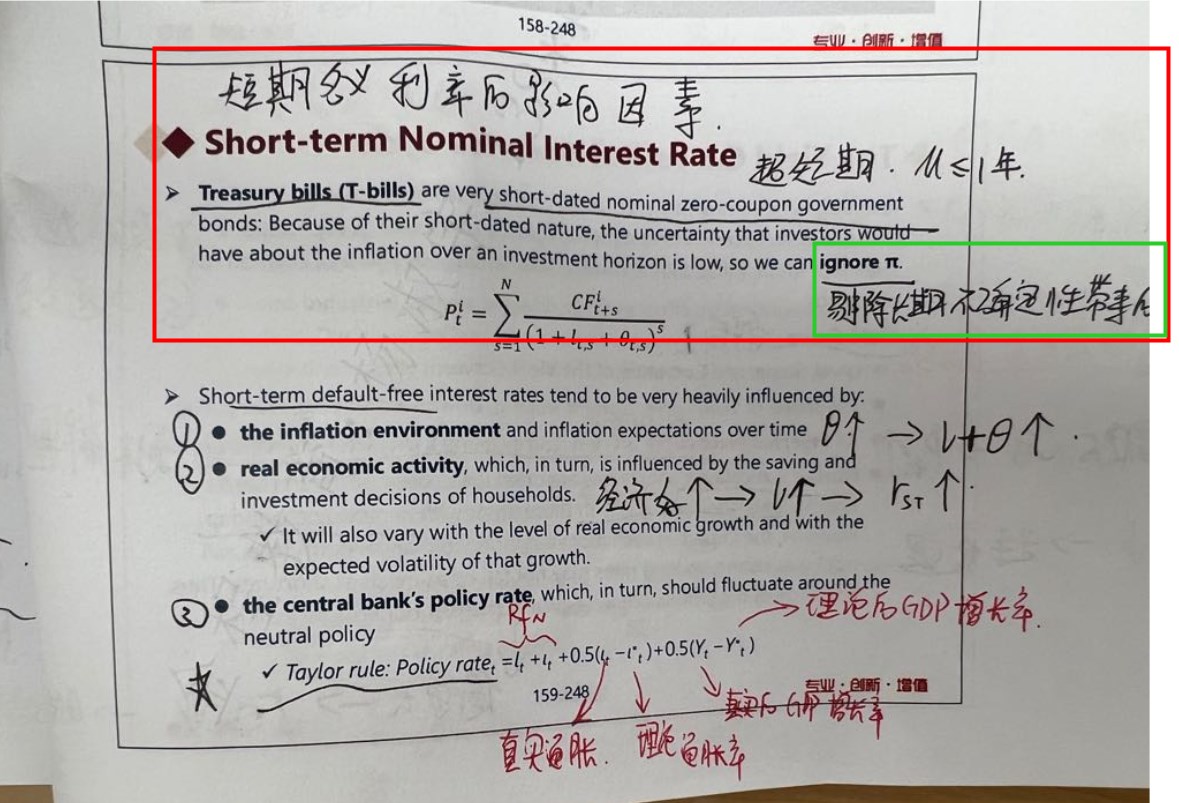 158-248
专业·创新·增值
短期名义利率的影响因素.
Short-term Nominal Interest Rate
超短期. M≤1年.
➤ Treasury bills (T-bills) are very short-dated nominal zero-coupon government
bonds: Because of their short-dated nature, the uncertainty that investors would
have about the inflation over an investment horizon is low, so we can ignore π.
剔除长期不确定性带来
P_t^i = ∑_{s=1}^{N} CF_{t+s}^i / (1 + l_{t,s} + θ_{t,s})^s
➤ Short-term default-free interest rates tend to be very heavily influenced by:
① ● the inflation environment and inflation expectations over time θ↑ → l+θ↑.
② ● real economic activity, which, in turn, is influenced by the saving and
investment decisions of households. 经济好↑ → l↑ → r_ST ↑.
✓ It will also vary with the level of real economic growth and with the
expected volatility of that growth.
③ ● the central bank's policy rate, which, in turn, should fluctuate around the
neutral policy
RfN
→理论的GDP增长率.
✓ Taylor rule: Policy rate_t =l_t +ι_t +0.5(ι_t −ι*_t)+0.5(Y_t −Y*_t)
159-248
专业·创新·增值
真实的GDP增长率
真实通胀.
理论通胀率